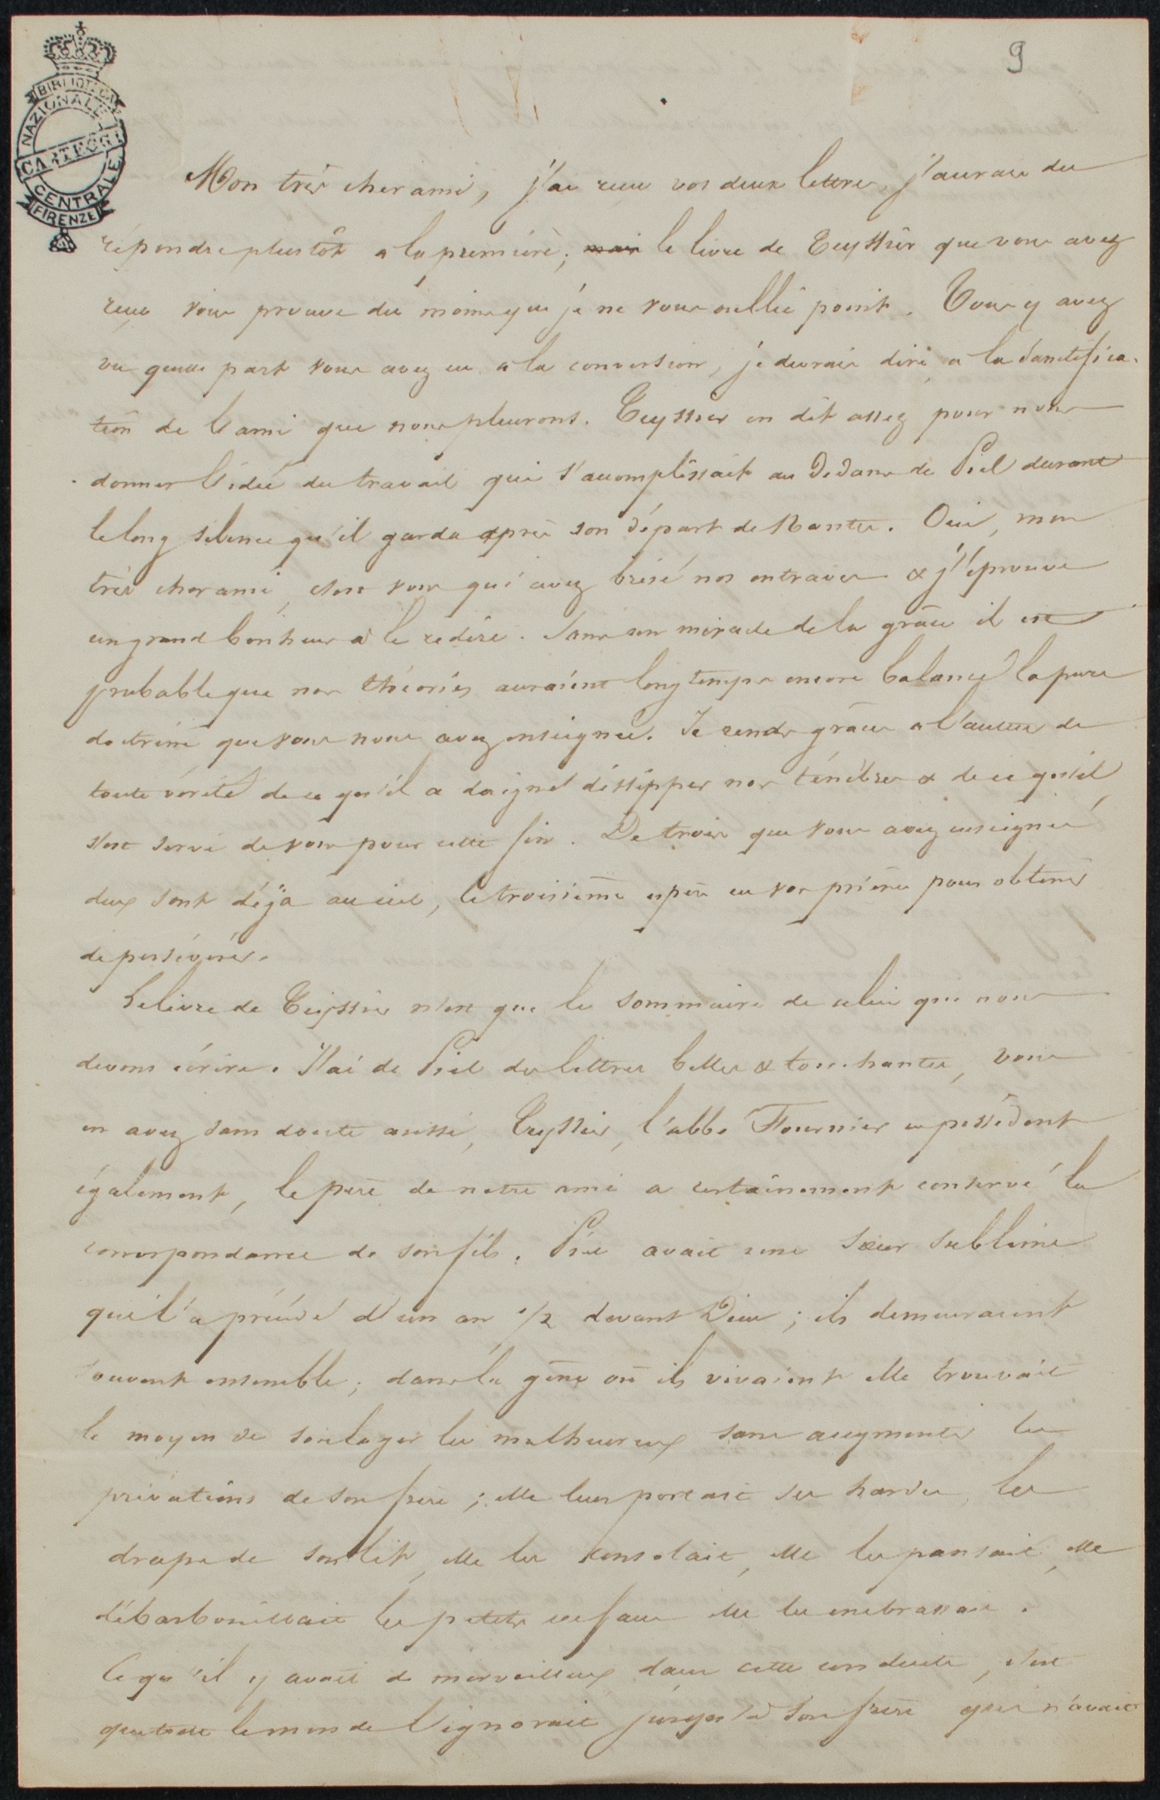 9
BIBLIOTECA
NAZIONALE
CARTEGGI
CENTRALE
FIRENZE
Mon très cher ami, j'ai reçu vos deux lettres, j'aurais du
répondre plustôt a la première; mais le livre de Teyssier que vous avez
reçu vous prouve du moins que je ne vous oublie point. Vous y avez
vu quelle part vous avez eu a la conversion, je devrais dire a la sanctifica-
tion de l'ami que nous pleurons. Teyssier en dit assez pour nous
donner l'idée du travail qui s'accomplissait au dedans de Piel durant
le long silence qu'il garda après son départ de Nantes. Oui, mon
très cher ami, c'est vous qui avez brisé nos entraves & j'éprouve
un grand bonheur à le redire. Sans un miracle de la grâce il est
probable que nos théories auraient longtemps encore balancé la pure
doctrine que vous nous avez enseignée. Je rends grâces a l'auteur de
toute vérité de ce qu'il a daigné dissipper nos ténèbres & de ce qu'il
s'est servi de vous pour cette fin. De trois que vous avez enseigné
deux sont déjà au ciel, le troisième espère en vos prières pour obtenir
de persévérer.
Le livre de Teyssier n'est que le sommaire de celui que nous
devons écrire. J'ai de Piel des lettres belles & touchantes, vous
en avez sans doute aussi, Teyssier, l'abbé Fournier en possèdent
également, le père de notre ami a certainement conservé la
correspondance de son fils. Piel avait une sœur sublime
qui l'a précédé d'un an 1/2 devant Dieu; ils demeuraient
souvent ensemble; dans la gêne où ils vivaient elle trouvait
le moyen de soulager les malheureux sans augmenter les
privations de son frère; elle leur portait ses hardes, les
draps de son lit, elle les consolait, elle les pansait, elle
débarbouillait les petits enfans elle les embrassait.
Ce qu'il y avait de merveilleux dans cette conduite, c'est
que tout le monde l'ignorait jusqu'à son frère qui n'avait